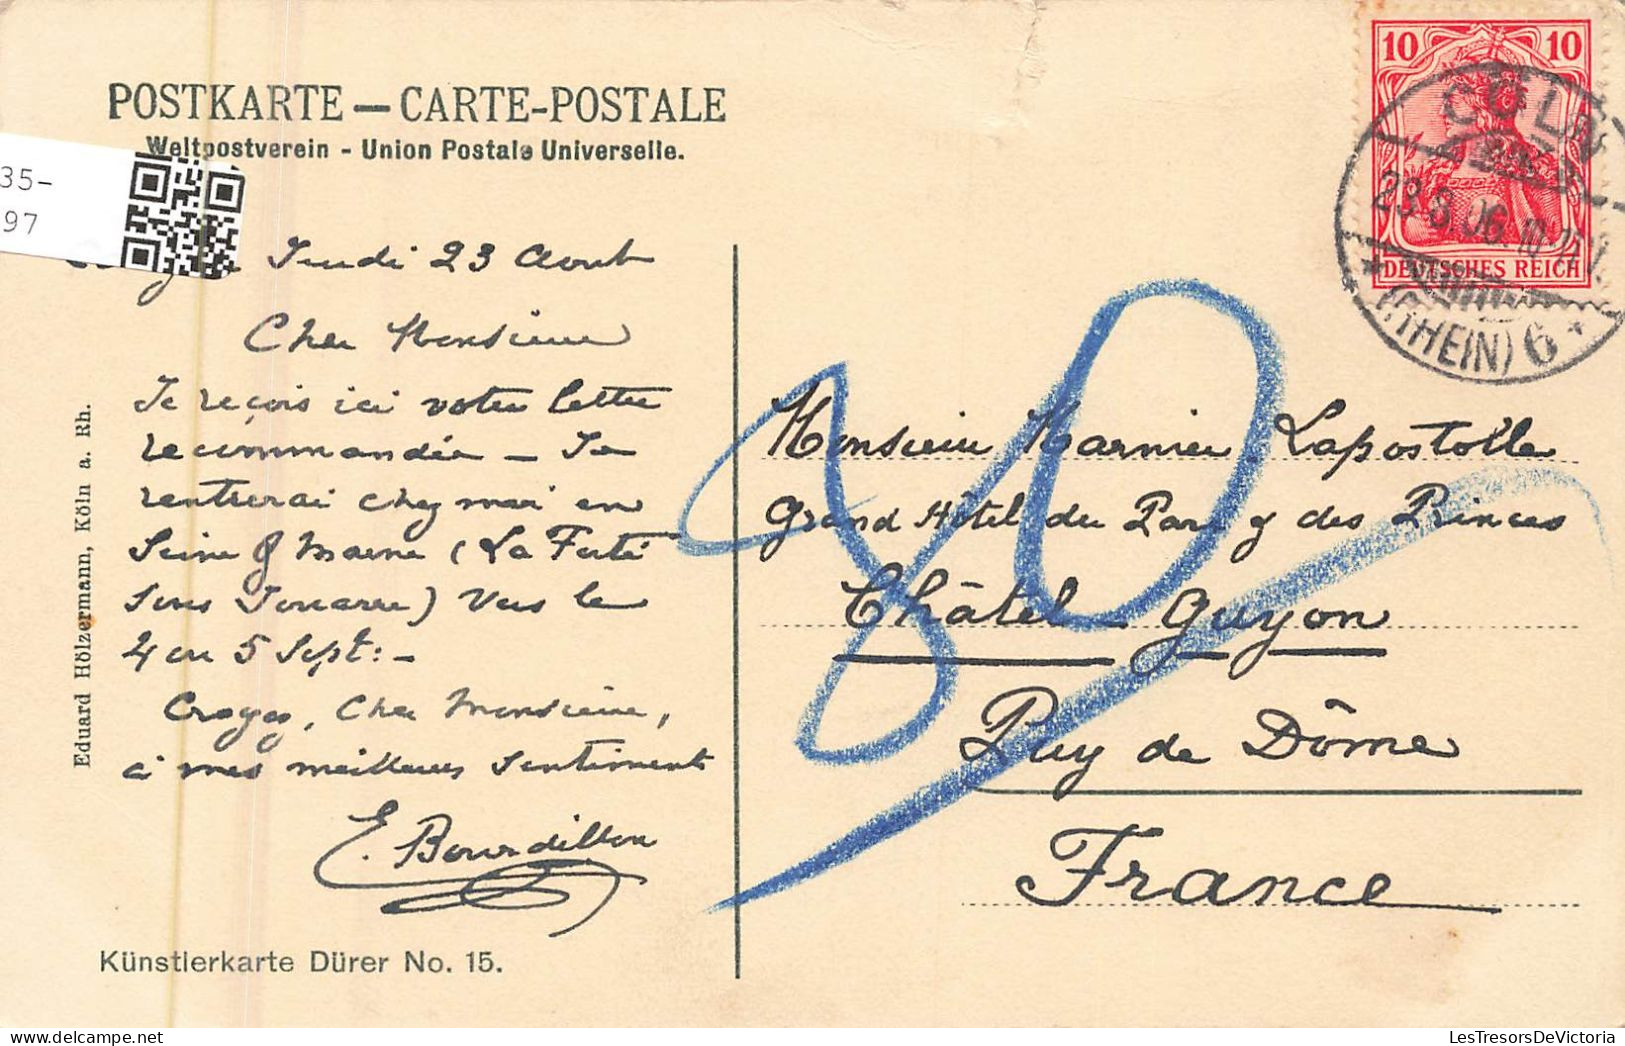 POSTKARTE — CARTE-POSTALE
Weltpostverein - Union Postale Universelle.
35-
97
Jeudi 23 Aout
Cher Monsieur
Je reçois ici votre lettre
recommandée — Je
rentrerai chez moi en
Seine & Marne (La Ferté
sous Jouarre) vers le
4 ou 5 Sept: -
Croyez, Cher Monsieur,
à mes meilleurs sentiments
E. Bourdillon
Künstlerkarte Dürer No. 15.
Eduard Hölzermann, Köln a. Rh.
10 10
DEUTSCHES REICH
CÖLN
23.8.06.10-11V.
* (RHEIN) 6 *
80
Monsieur Marnier Lapostolle
Grand Hôtel du Parc & des Princes
Châtel-Guyon
Puy de Dôme
France
LesTresorsDeVictoria.com